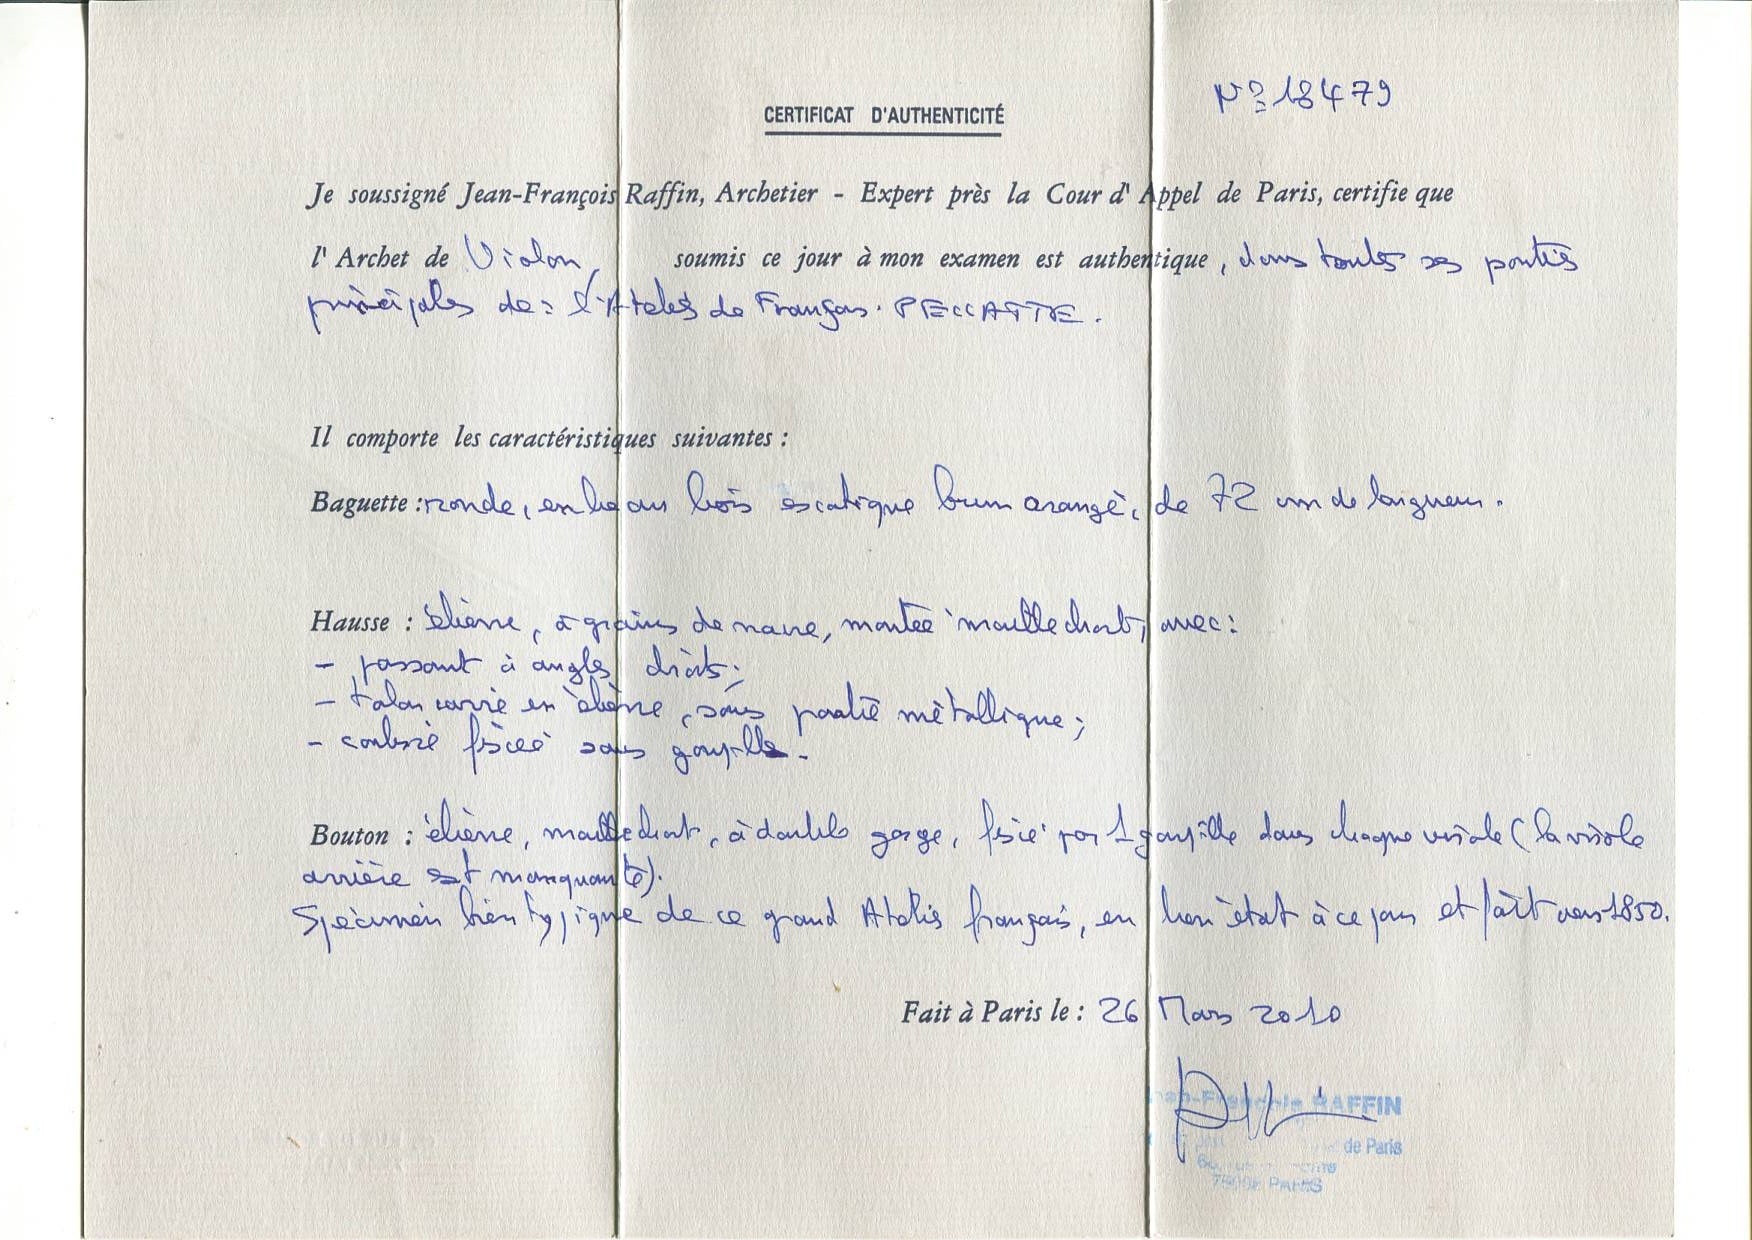 N° 18479
CERTIFICAT D'AUTHENTICITÉ
Je soussigné Jean-François Raffin, Archetier - Expert près la Cour d'Appel de Paris, certifie que
l'Archet de Violon, soumis ce jour à mon examen est authentique, dans toutes ses parties
principales de : l'Atelier de François PECCATTE.
Il comporte les caractéristiques suivantes :
Baguette : ronde, en beau bois exotique brun orangé, de 72 cm de longueur.
Hausse : ébène, à grains de nacre, montée maillechort, avec :
- passant à angles droits;
- talon carré en ébène, sans partie métallique;
- coulisse fixée sans goupille.
Bouton : ébène, maillechort, à double gorge, fixé par 1 goupille dans chaque virole (la virole
arrière est manquante).
Spécimen bien typique de ce grand Atelier français, en bon état à ce jour et fait vers 1850.
Fait à Paris le : 26 Mars 2010
RAFFIN
de Paris
PARIS